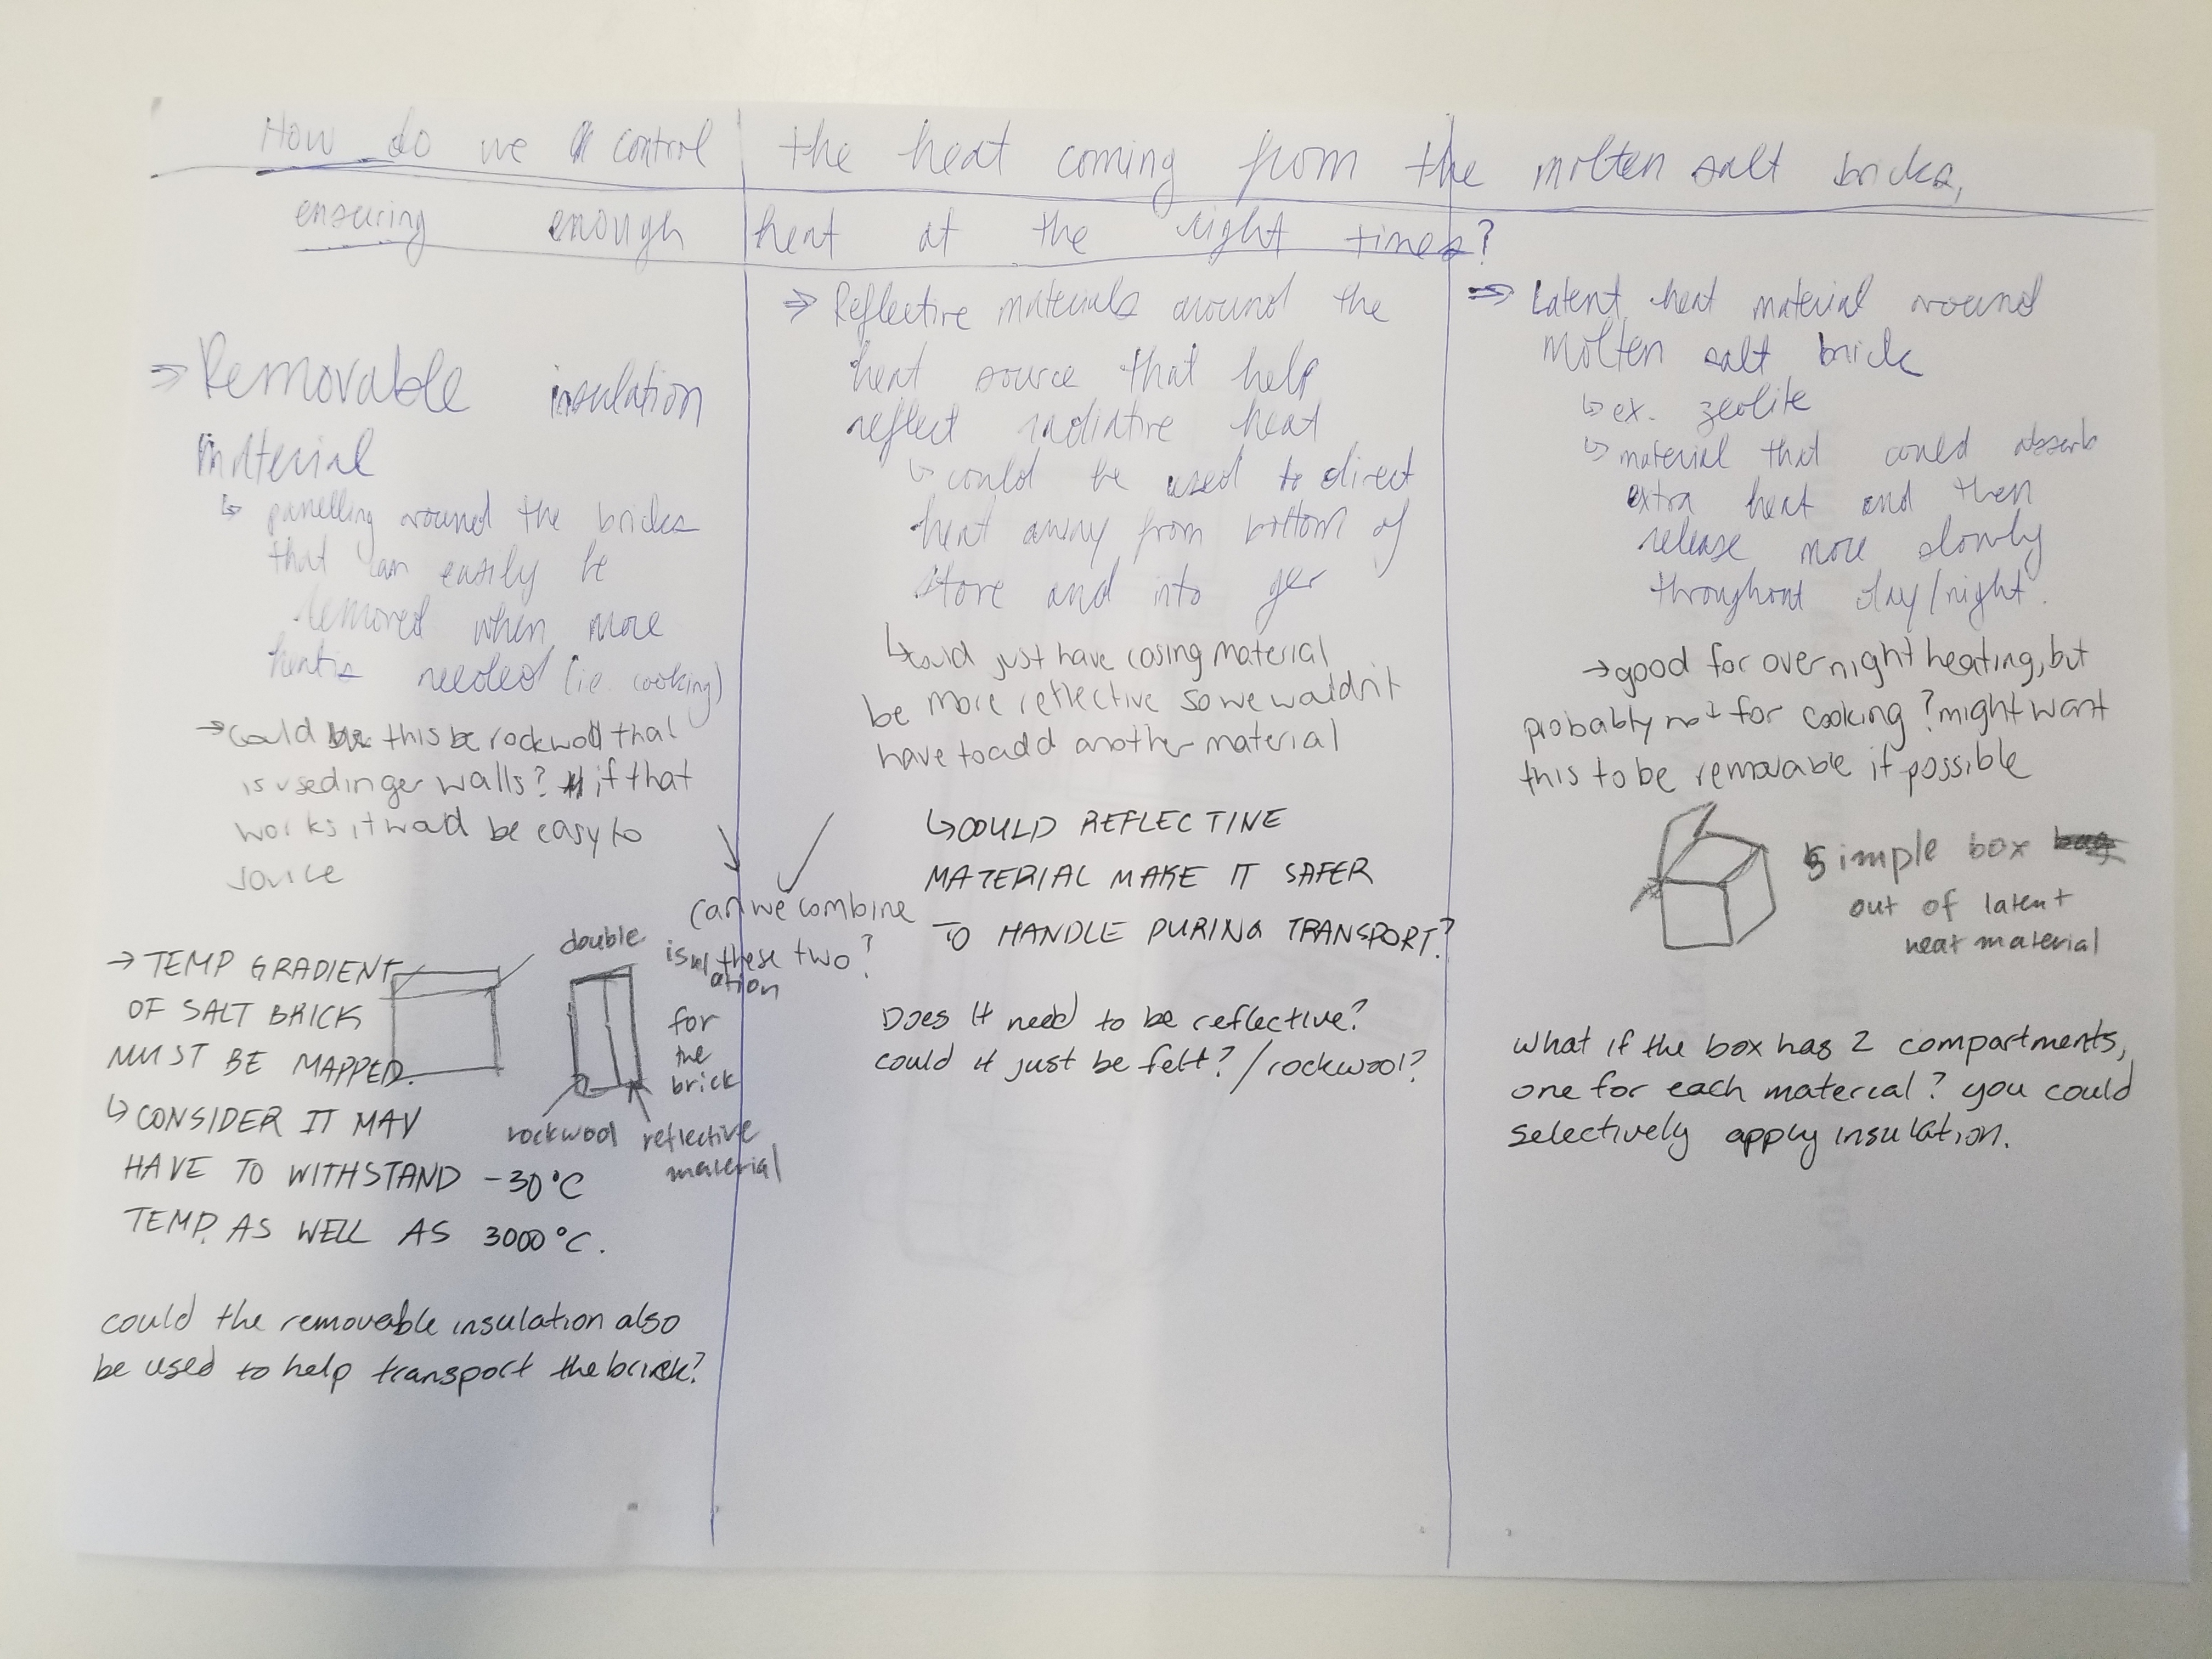 How do we control the heat coming from the molten salt bricks,
ensuring enough heat at the right times?
⇒ Removable insulation
material
↳ panelling around the bricks
that can easily be
removed when more
heat is needed (i.e. cooking)
→ could this be rockwool that
is used in ger walls? if that
works it would be easy to
source
→ TEMP GRADIENT
OF SALT BRICK
MUST BE MAPPED.
↳ CONSIDER IT MAY
HAVE TO WITHSTAND -30°C
TEMP. AS WELL AS 3000°C.
double
isulation
for
the
brick
rockwool
reflective
material
could the removable insulation also
be used to help transport the brick?
can we combine
these two?
⇒ Reflective materials around the
heat source that help
reflect radiative heat
↳ could be used to direct
heat away from bottom of
stove and into ger
↳ could just have casing material
be more reflective so we wouldn't
have to add another material
↳ COULD REFLECTINE
MATERIAL MAKE IT SAFER
TO HANDLE DURING TRANSPORT?
Does it need to be reflective?
could it just be felt? / rockwool?
⇒ Latent heat material around
molten salt brick
↳ ex. zeolite
↳ material that could absorb
extra heat and then
release more slowly
throughout day/night.
→ good for overnight heating, but
probably not for cooking? might want
this to be removable if possible
simple box
out of latent
heat material
what if the box has 2 compartments,
one for each material? you could
selectively apply insulation.